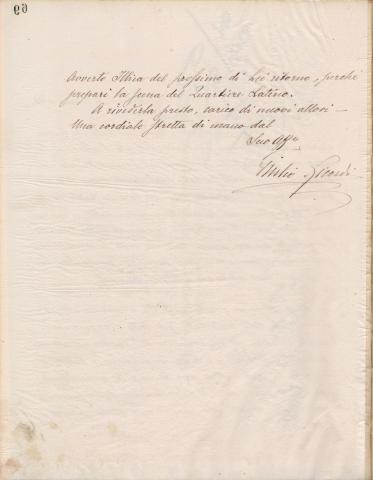 69
Avverto Illica del prossimo di Lei ritorno, perchè
prepari la scena del Quartiere Latino.
A rivederla presto, carico di nuovi allori —
Una cordiale stretta di mano dal
Suo Affmo
Giulio Ricordi